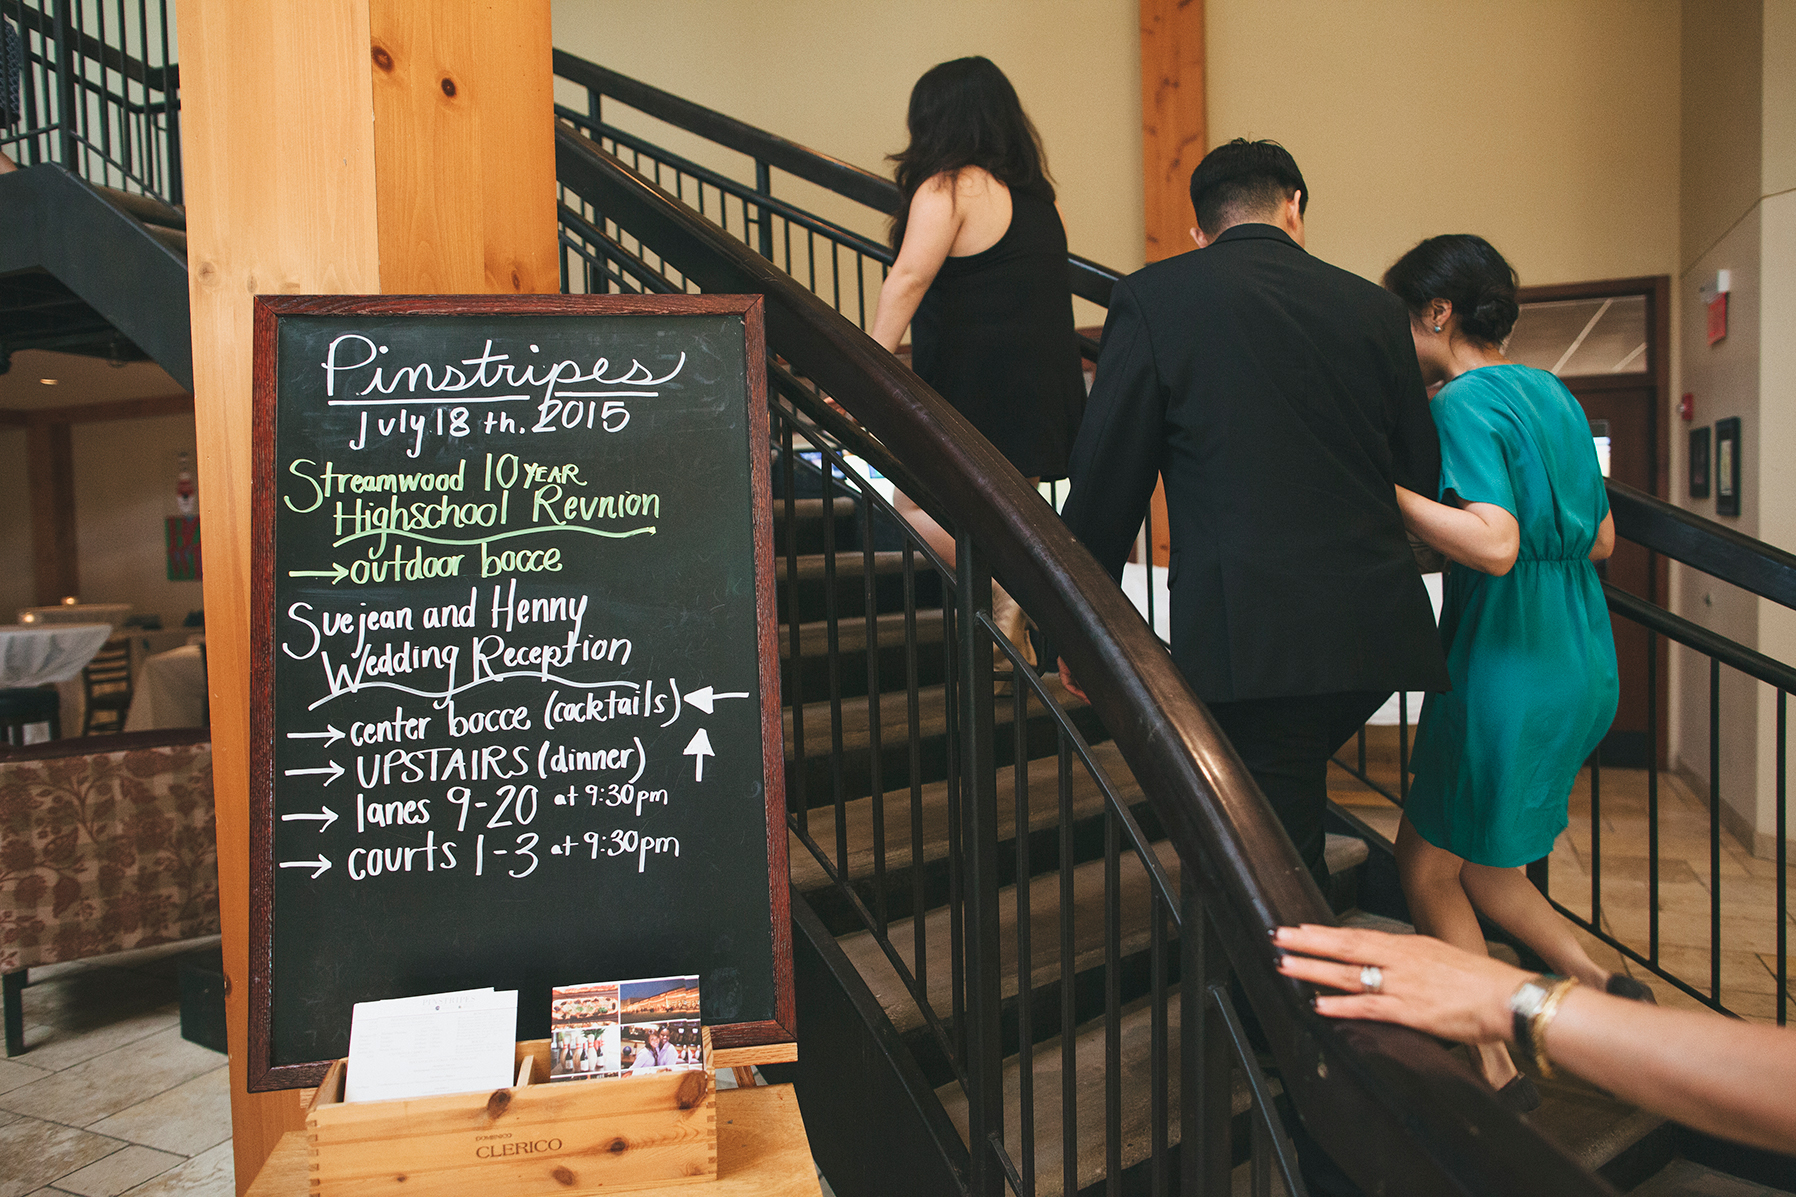 Pinstripes
July 18th. 2015
Streamwood 10 YEAR
Highschool Reunion
→outdoor bocce
Suejean and Henny
Wedding Reception
→center bocce (cocktails) ←
→ UPSTAIRS (dinner) ↑
→ lanes 9-20 at 9:30pm
→ courts 1-3 at 9:30pm
DOMENICO
CLERICO